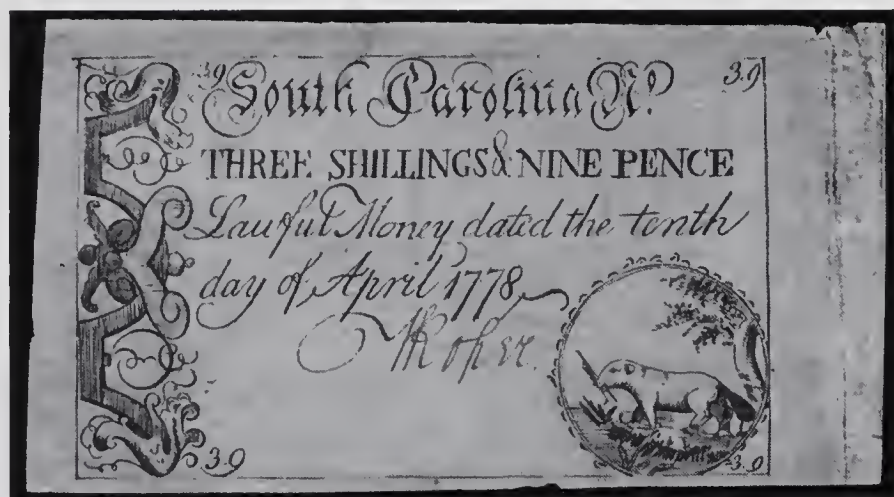 3.9 South Carolina Nº. 3.9
THREE SHILLINGS & NINE PENCE
Lawful Money dated the tenth
day of April 1778
3.9 3.9